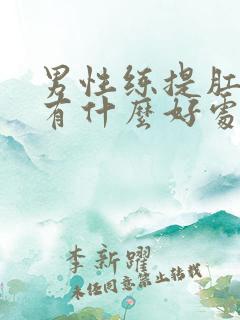 男性练提肛
有什麼好處
李新躍
未任同意禁止转载